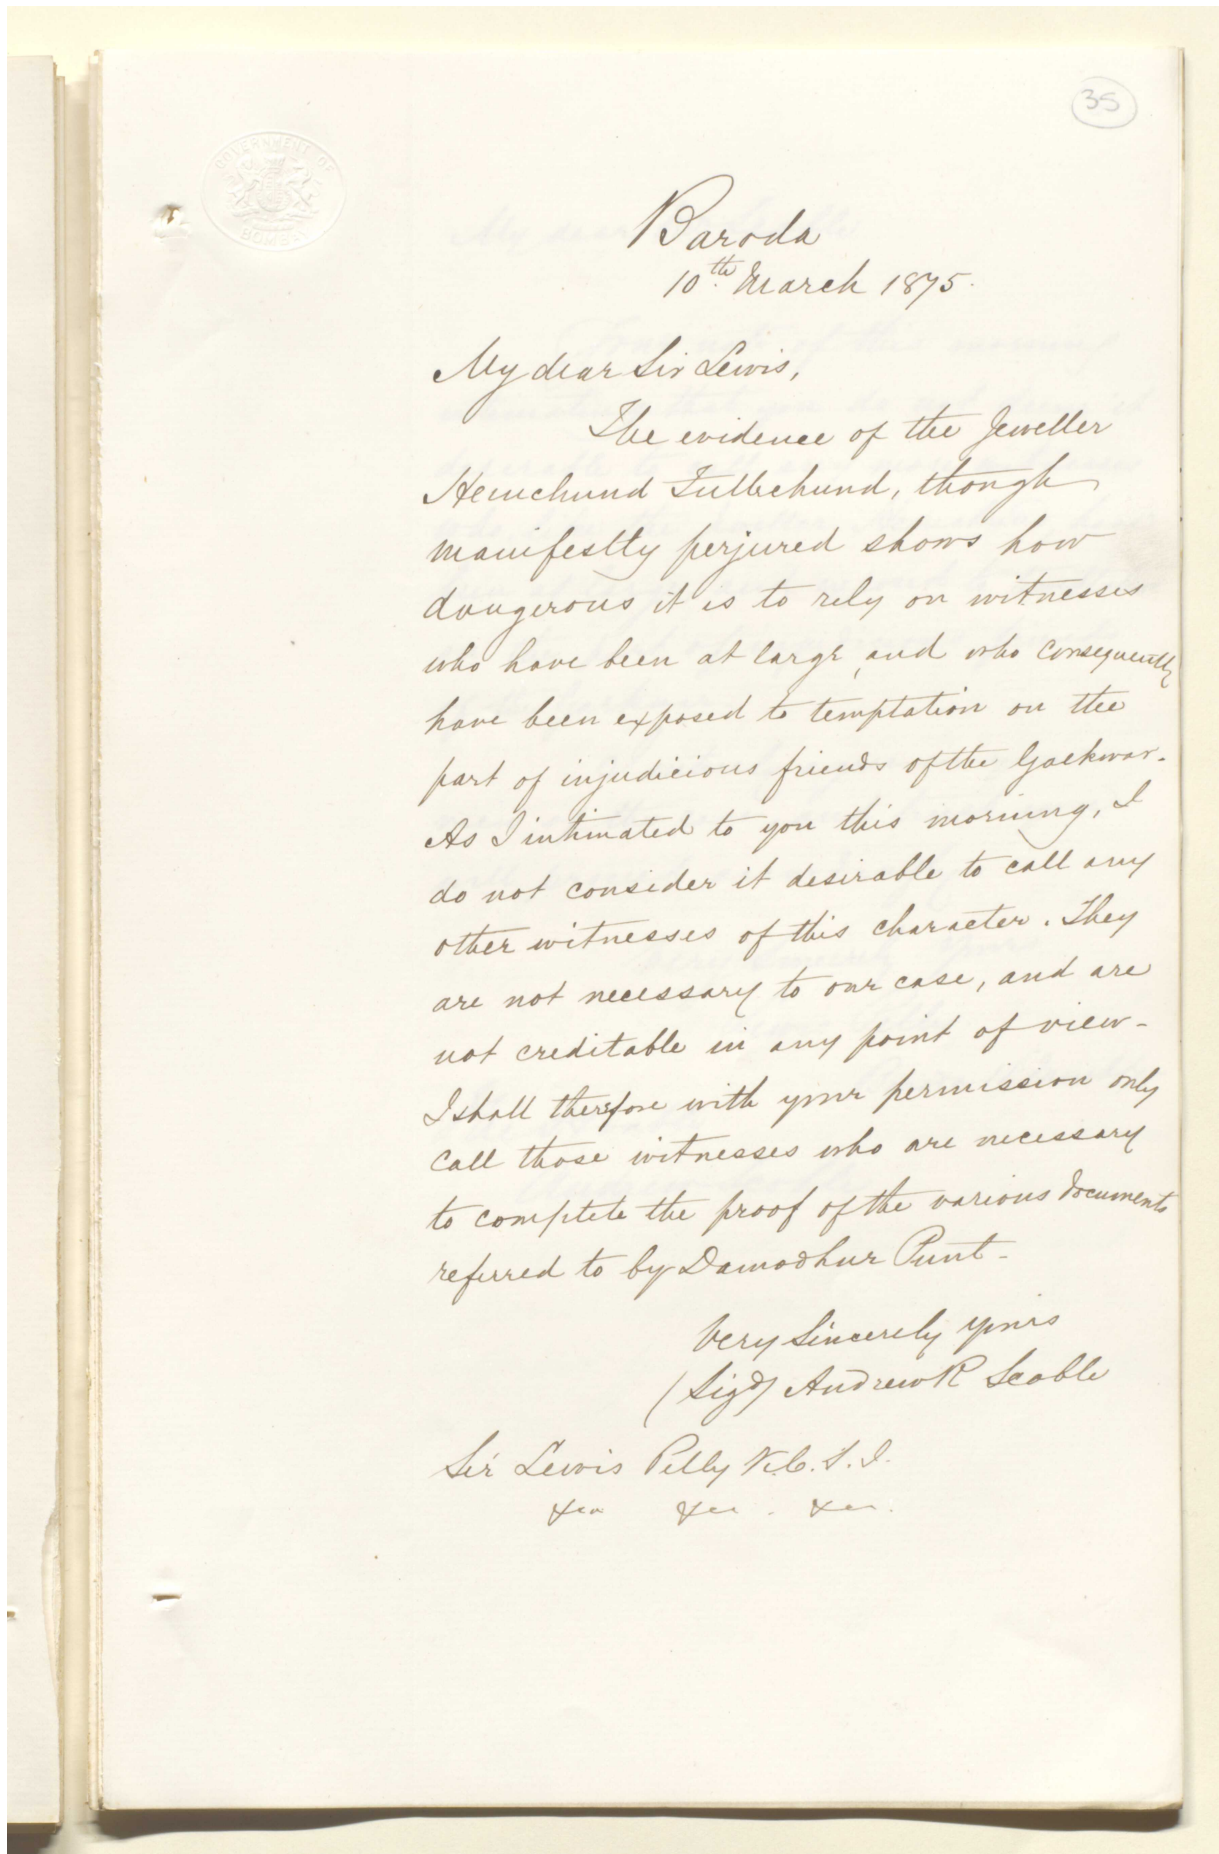 35
GOVERNMENT OF
BOMBAY
Baroda
10th March 1875.
My dear Sir Lewis,
The evidence of the Jeweller
Hemchund Futtechund, though
manifestly perjured shows how
dangerous it is to rely on witnesses
who have been at large, and who consequently
have been exposed to temptation on the
part of injudicious friends of the Gaekwar.
As I intimated to you this morning, I
do not consider it desirable to call any
other witnesses of this character. They
are not necessary to our case, and are
not creditable in any point of view-
I shall therefore with your permission only
call those witnesses who are necessary
to complete the proof of the various documents
referred to by Damodhur Punt-
Very Sincerely yours
(Sigd) Andrew R Scoble
Sir Lewis Pelly K.C.S.I.
&ca &ca. &ca.